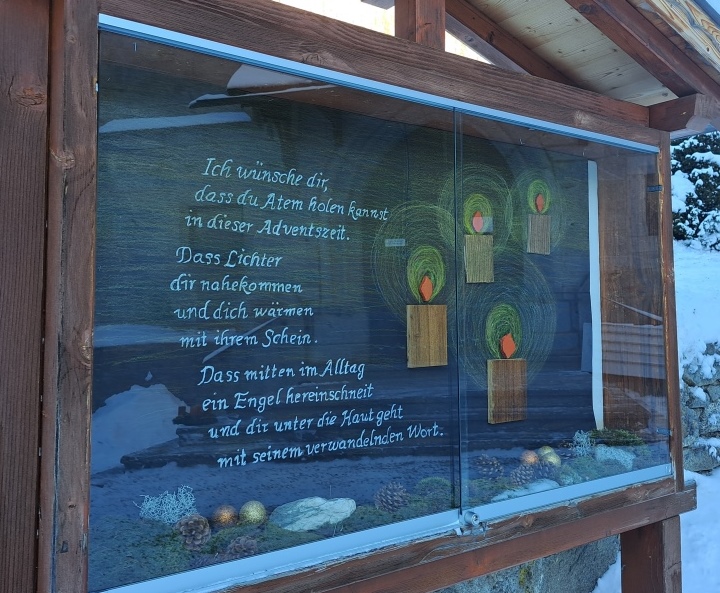 Ich wünsche dir,
dass du Atem holen kannst
in dieser Adventszeit.
Dass Lichter
dir nahekommen
und dich wärmen
mit ihrem Schein.
Dass mitten im Alltag
ein Engel hereinschneit
und dir unter die Haut geht
mit seinem verwandelnden Wort.